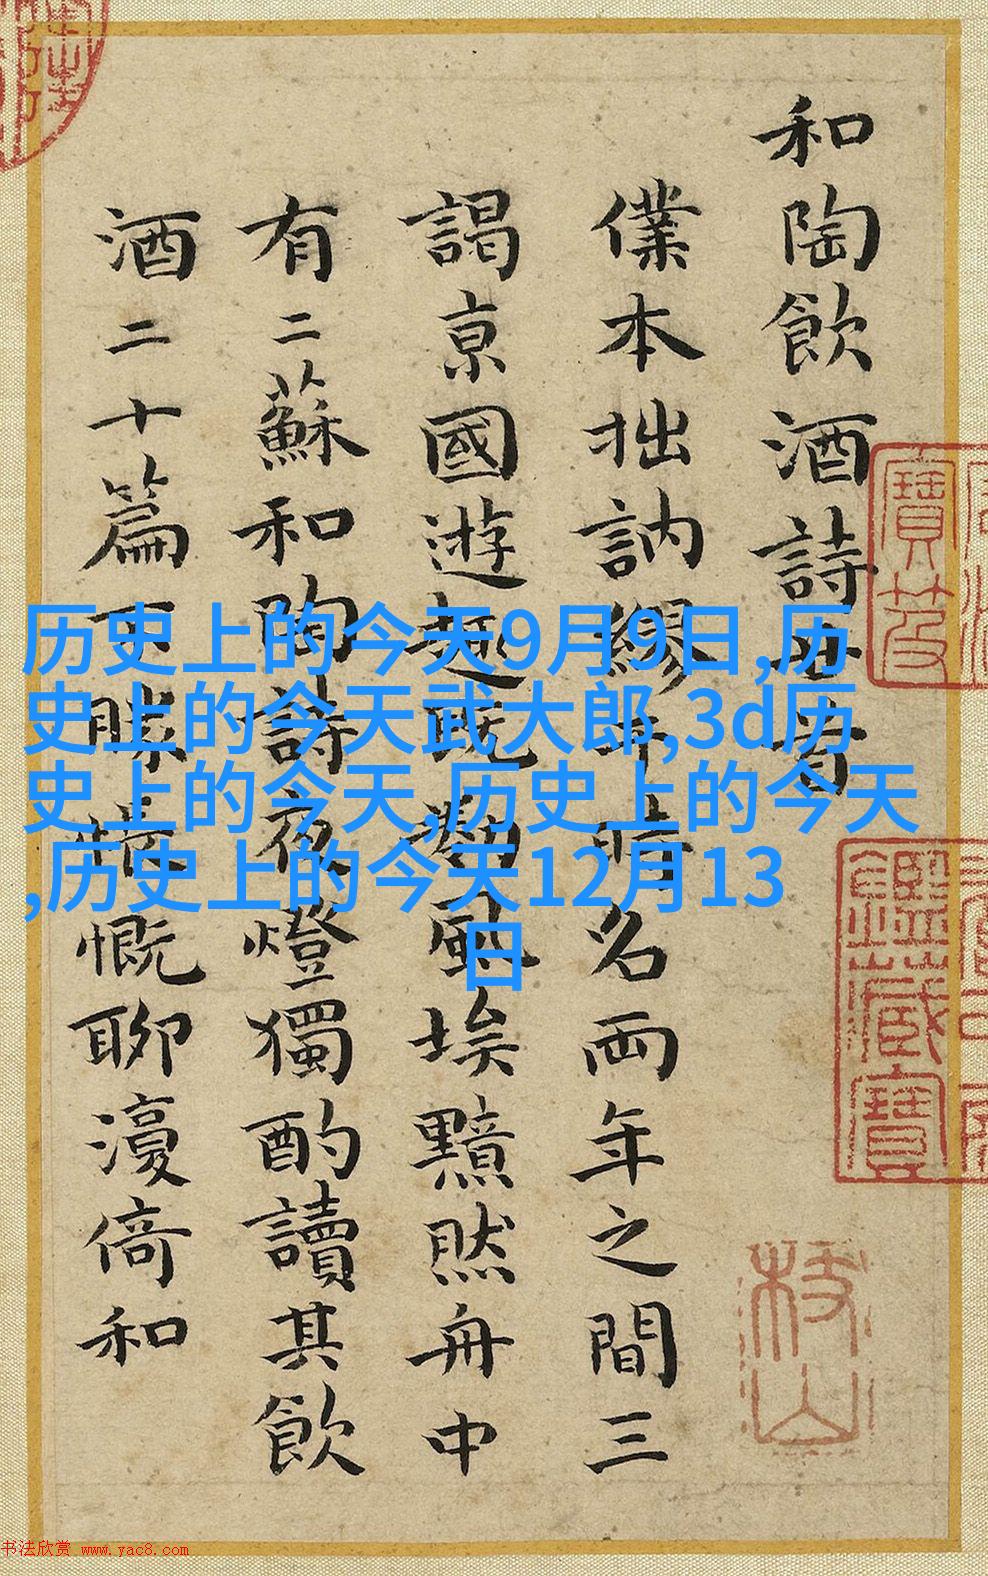 和陶飲酒詩
僕本拙訥繆干時名兩年之間三
謁京國遊趣既勌風埃黯然舟中
有二蘇和陶詩夜燈獨酌讀其飲
酒二十篇不勝慨聊漫倚和
历史上的今天9月9日,历
史上的今天武大郎,3d历
史上的今天,历史上的今天
,历史上的今天12月13
日
寶笈
鑑藏寶
枝山
书法欣赏 www.yac8.com